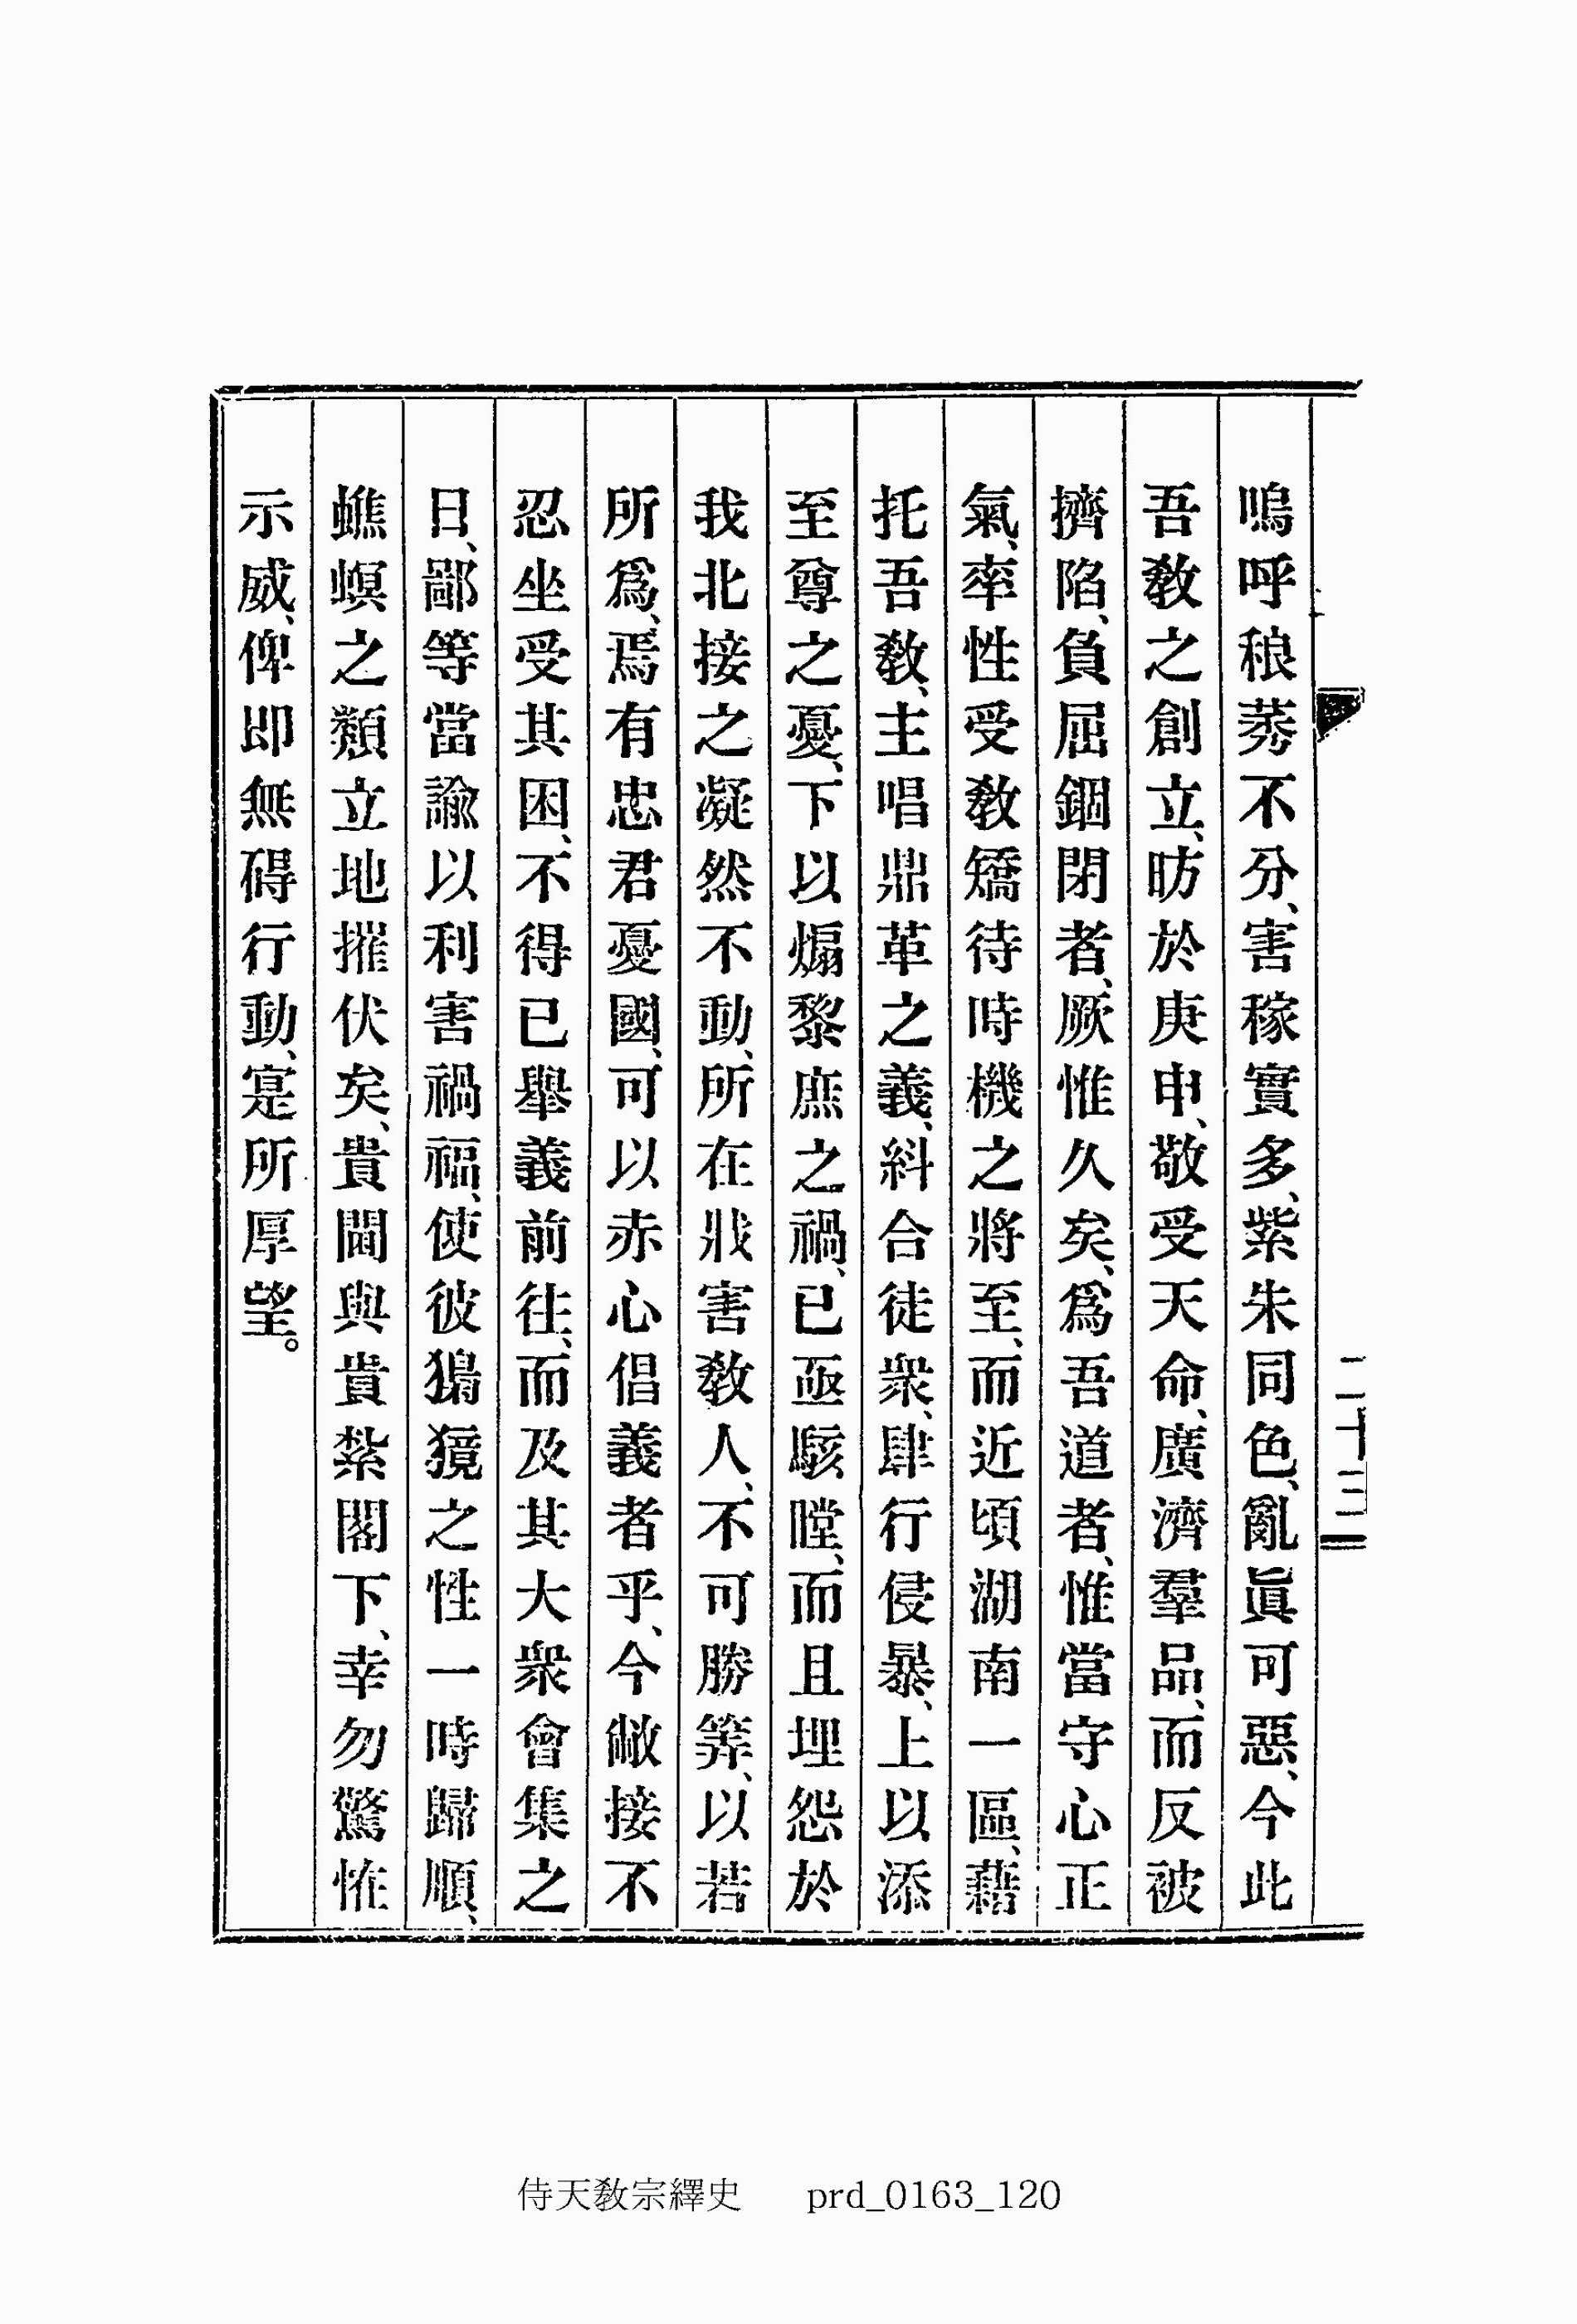 嗚呼稂莠不分、害稼實多、紫朱同色、亂眞可惡、今此
吾敎之創立、昉於庚申、敬受天命、廣濟羣品、而反被
擠陷、負屈錮閉者、厥惟久矣、爲吾道者、惟當守心正
氣、率性受敎、矯待時機之將至、而近頃湖南一區、藉
托吾敎、主唱鼎革之義、糾合徒衆、肆行侵暴、上以添
至尊之憂、下以煽黎庶之禍、已亟駭瞠、而且埋怨於
我北接之凝然不動、所在戕害敎人、不可勝筭、以若
所爲、焉有忠君憂國、可以赤心倡義者乎、今敝接不
忍坐受其困、不得已擧義前往、而及其大衆會集之
日、鄙等當諭以利害禍福、使彼獍之性一時歸順、
蟭螟之類立地摧伏矣、貴閫與貴紮閣下、幸勿驚惟
示威、俾即無碍行動、寔所厚望。
二十三
侍天敎宗繹史 prd_0163_120